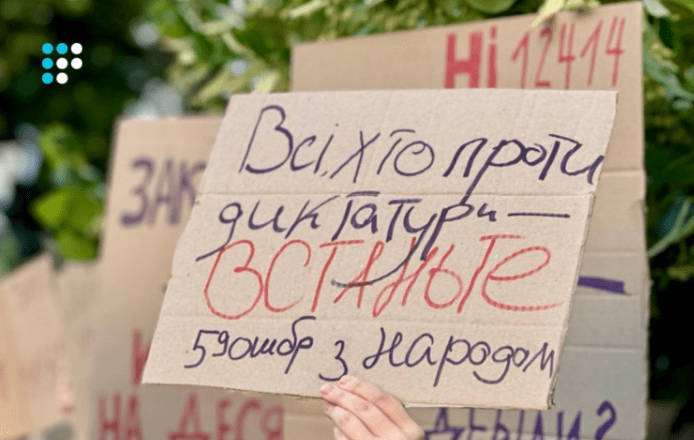 Ні 12414
Всі, хто проти
диктатури —
ВСТАНЬТЕ
59ошбр з народом
ЗАК
НА ДЕСЯ